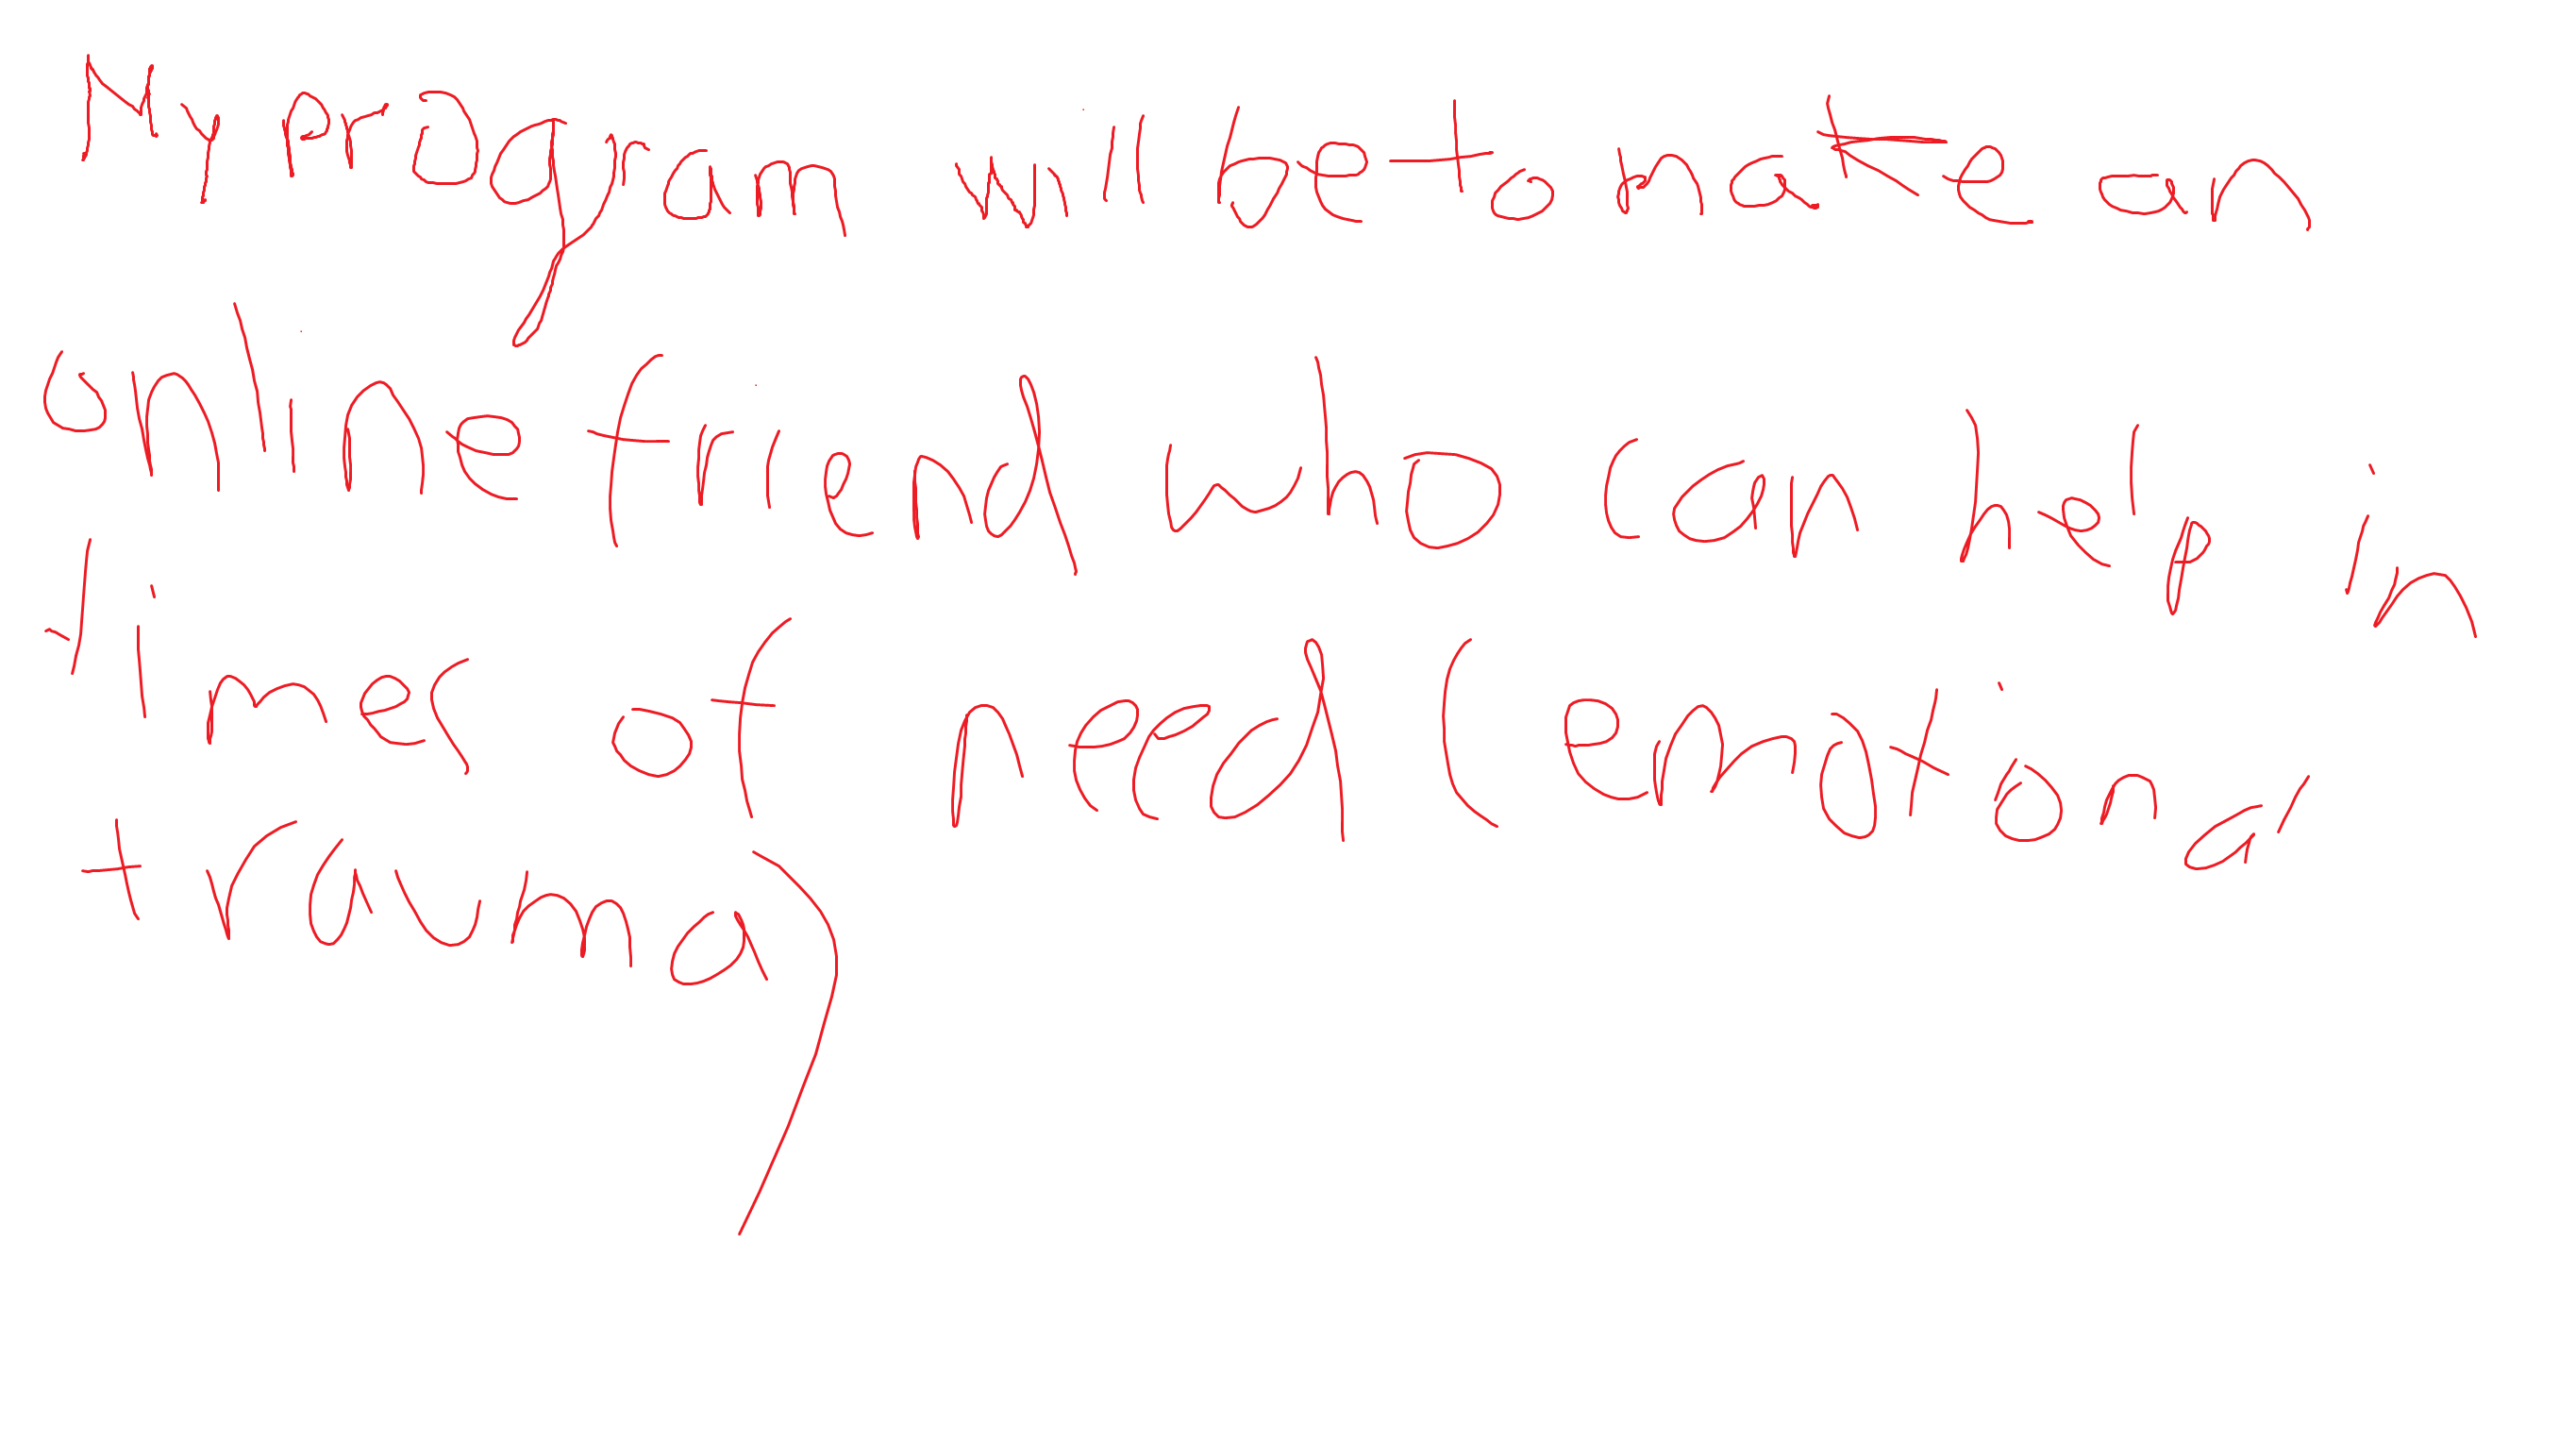 My program will be to make an
online friend who can help in
times of need (emotional
trauma)